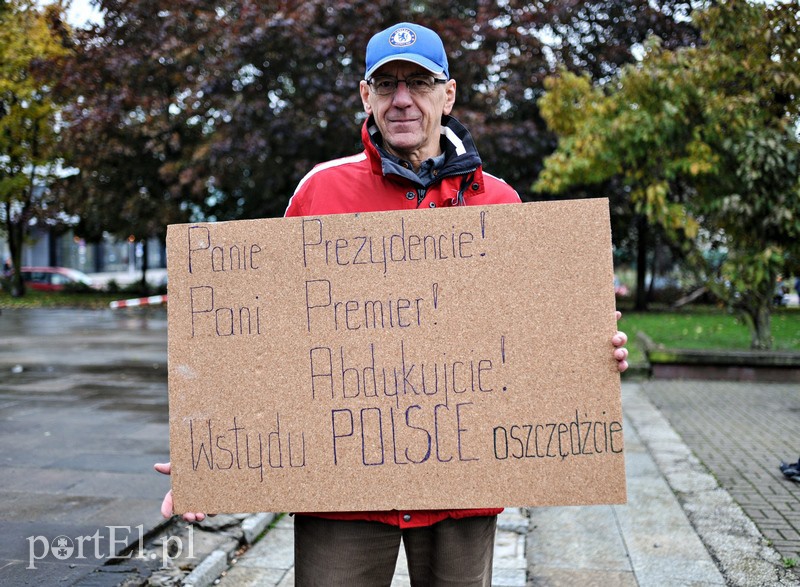 Panie Prezydencie!
Pani Premier!
Abdykujcie!
Wstydu POLSCE oszczędźcie
portEl.pl